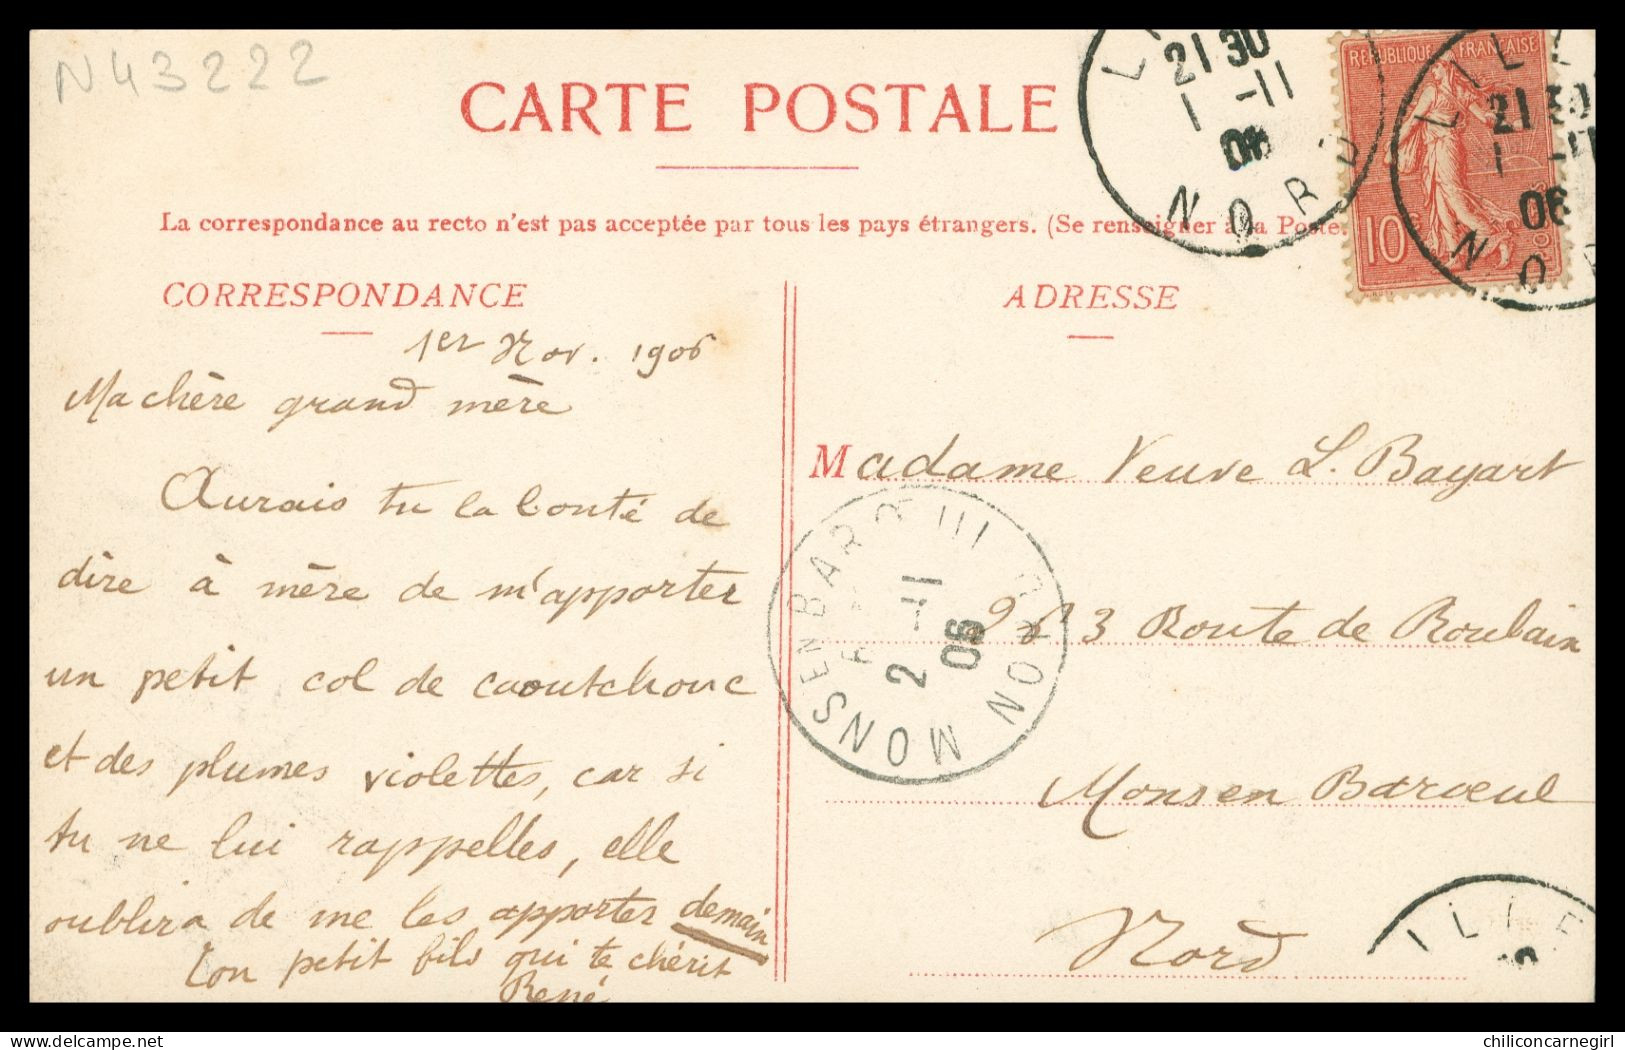 N43222
CARTE POSTALE
La correspondance au recto n'est pas acceptée par tous les pays étrangers. (Se renseigner à la Poste.
CORRESPONDANCE
1er Nov. 1906
Ma chère grand mère
Aurais tu la bonté de
dire à mère de m'apporter
un petit col de caoutchouc
et des plumes violettes, car si
tu ne lui rappelles, elle
oublira de me les apporter demain
Ton petit fils qui te chérit
René
ADRESSE
Madame Veuve L. Bayart
Route de Roubaix
Mons en Baroeul
Nord
REPUBLIQUE FRANÇAISE
10c
LILLE
21 30
1 -11
06
NORD
LILLE
21 30
1 -11
06
NORD
MONS EN BARŒUL
2 -11
06
LILLE
chiliconcarnegirl